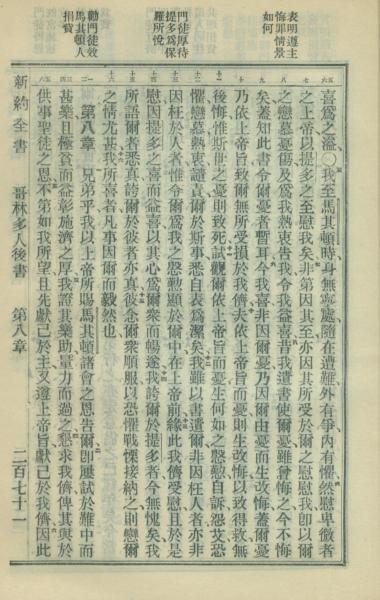 表明遵主
悔罪情景
如何
門徒厚待
提多為保
羅所悅
勸門徒效
馬其頓人
捐資
喜爲之溢○我至馬其頓時身無寧處隨在遭難外有爭內有懼然慰卑微者
之上帝以提多之至慰我矣非第因其至亦因其所受於爾之慰慰我卽以爾
之戀慕憂傷及爲我熱衷告我令我益喜昔我遺書使爾憂雖曾悔之今不悔
矣蓋知此書令爾憂者暫耳今我喜非因爾憂乃因爾由憂而生改悔蓋爾憂
乃依上帝旨致爾無所受損於我儕夫依上帝旨而憂則生改悔以致得救無
後悔惟斯世之憂則致死試觀爾依上帝旨而憂生何如之慇懃自訴怨艾恐
懼戀慕熱衷譴責爾於斯事悉自表爲潔矣我雖以書遺爾非因枉人者亦非
因枉於人者惟令爾爲我之慇懃顯於爾中在上帝前緣此我儕受慰且於是
慰因提多之喜而益喜以其心爲爾衆而暢遂我誇爾於提多者今無愧矣我
所語爾者悉真誇爾於彼者亦真彼念爾衆順服以恐懼戰慄接納之則戀爾
之情尤甚我所喜者凡事因爾而毅然也
第八章 兄弟乎我以上帝所賜馬其頓諸會之恩告爾卽屢試於難中而
甚樂且極貧而益彰施濟之厚我證其樂助量力而過之懇求我儕俾其與於
供事聖徒之恩不第如我所望且先獻己於主又遵上帝旨獻己於我儕因此
新約全書 哥林多人後書 第八章 二百七十一